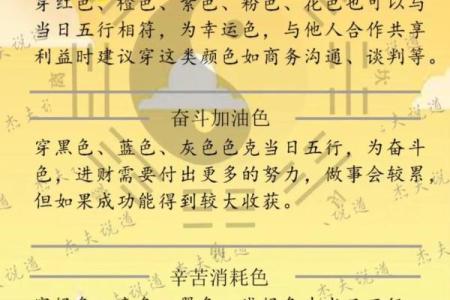 穿红色、橙色、紫色、粉色、花色也可以与
当日五行相符，为幸运色，与他人合作共享
利益时建议穿这类颜色如商务沟通、谈判等。
奋斗加油色
穿黑色、蓝色、灰色色克当日五行，为奋斗
色，进财需要付出更多的努力，做事会较累，
但如果成功能得到较大收获。
辛苦消耗色
杰夫说道
杰夫说道
杰夫说道
杰夫说道